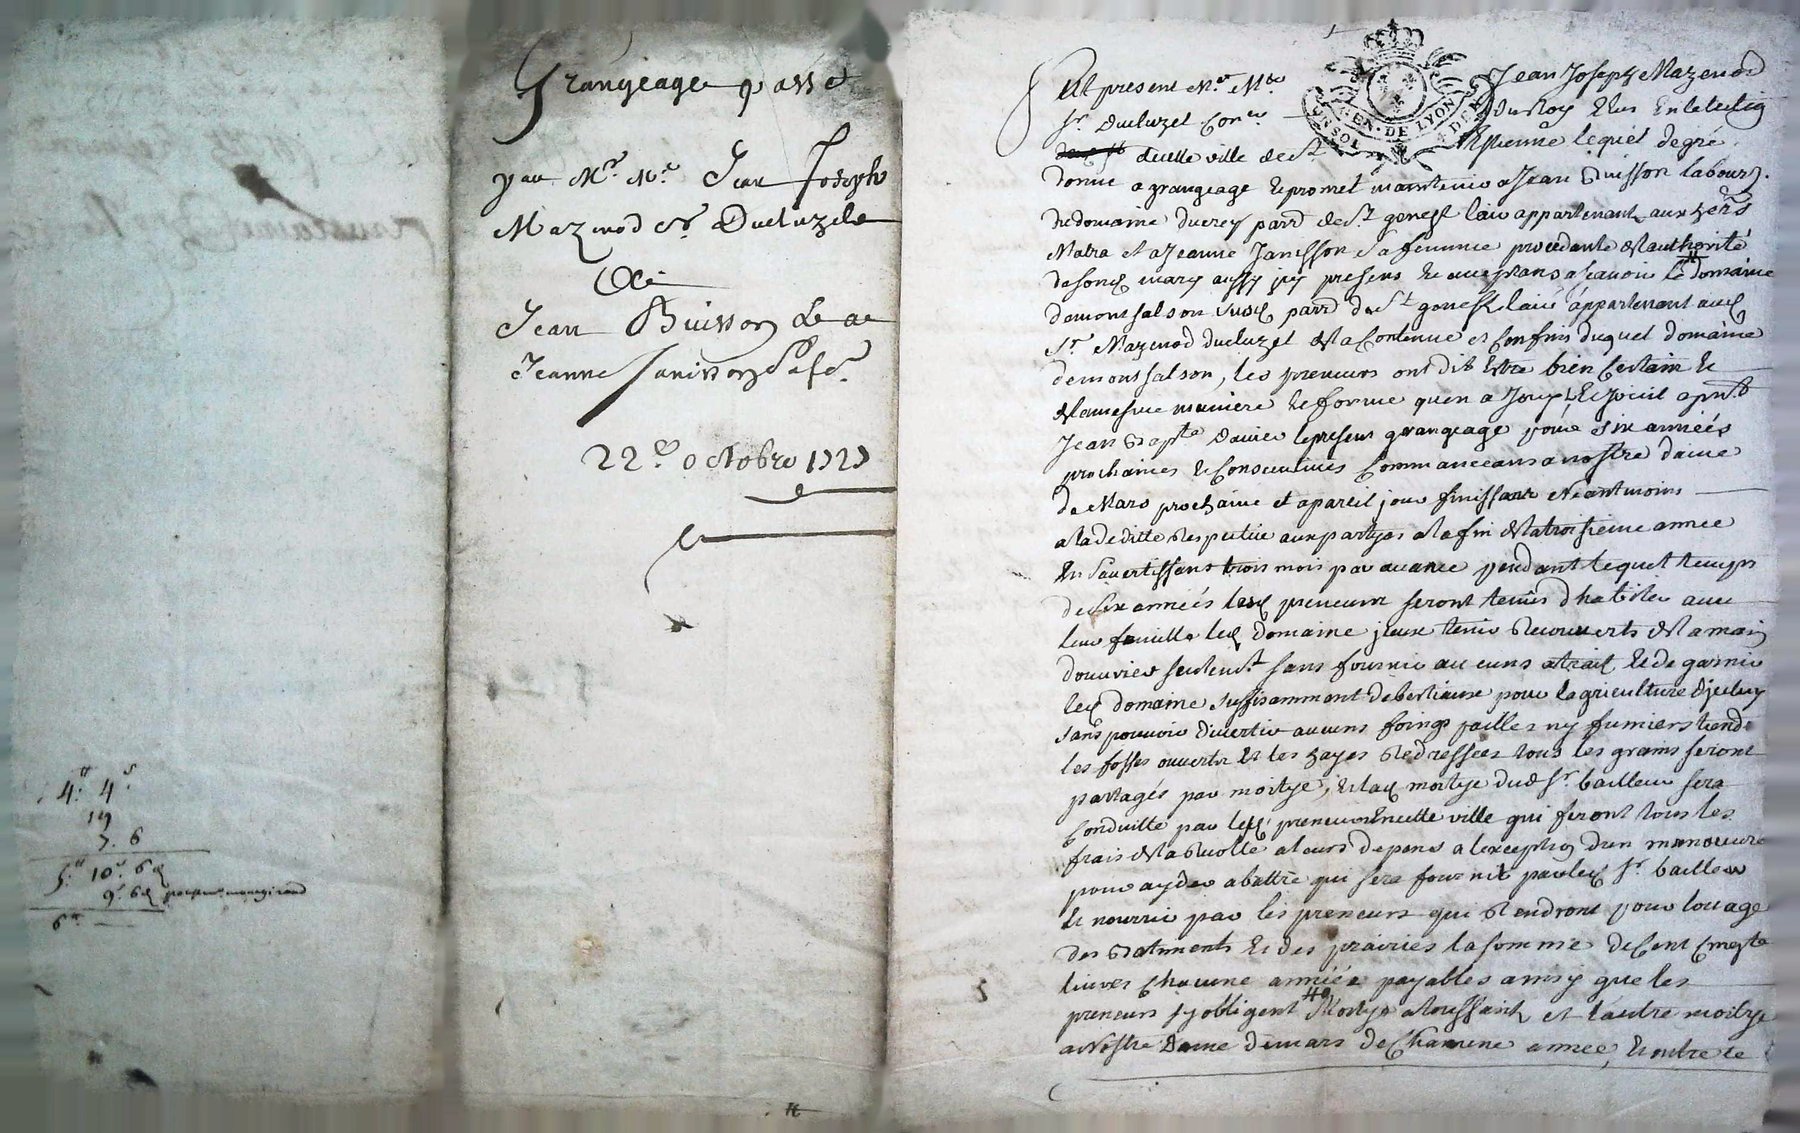 Grangeage passé
par Mr. Me. Jean Joseph
Mazenod Sr. Ducluzel
A
Jean Buisson Et a
Jeanne Janisson sa fe.
22e. octobre 1727
4tt. 4s
19
7. 6
5tt. 10s. 6d
9s. 6d
6tt
GEN. DE LYON
Fut present Mr. Me. Jean Joseph Mazenod
Sr. Ducluzel Coner. du Roy Esleu En lelection
de cette ville de St. Estienne lequel de gré
donne a grangeage et promet maintenir a Jean Buisson labourr.
du domaine du crey parr. de St. genest lair appartenant aux
Matra et a Jeanne Janisson sa femme procedante de lauthorité
de son mary aussy icy presens et acceptans a scavoir le domaine
de montsalson susd. parr. de St. genest lair appartenant aud.
Sr. Mazenod ducluzel de la Contenue et confins duquel domaine
de montsalson, les preneurs ont dit Estre bien certains et
de la mesme maniere et forme quen a Jouy et Jouit
Jean Bapte. le present grangeage pour six années
prochaines et consecutives commanceans a nostre dame
de Mars prochaine et a pareil jour finissant neantmoins
a la deditte respective aux partyes a la fin de la troisieme année
En savertissant trois mois par avance pendant lequel temps
de six années lesd. preneurs seront tenus dhabiter avec
leur famille led. domaine iceux tenir recouverts de la main
douvrier seulemt. sans fournir aucuns atrait et de garnir
led. domaine suffisamment de bestiaux pour lagriculture dicelluy
sans pouvoir divertir aucuns foings pailles ny fumiers tiendr.
les fosses ouverts et les hayes redressées tous les grains seront
partagés par moitye, et lad. moitye dud. Sr. bailleur sera
conduitte par lesd. preneurs En cette ville qui feront tous les
frais de la recolte a leurs depens a lexception dun manoeuvre
pour ayder a battre qui sera fournit par led. Sr. bailleur
et nourrir par les preneurs qui rendront pour louage
des batiments et des prairies la somme de cent cinqte
livres chacune année payables ainsy que les
preneurs sy obligent Moitye a toussaint et lautre moitye
a Nostre Dame de mars de chacune année, Et outre ce